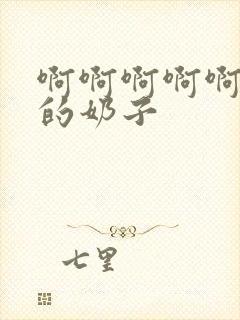 啊啊啊啊啊
的奶子
七里